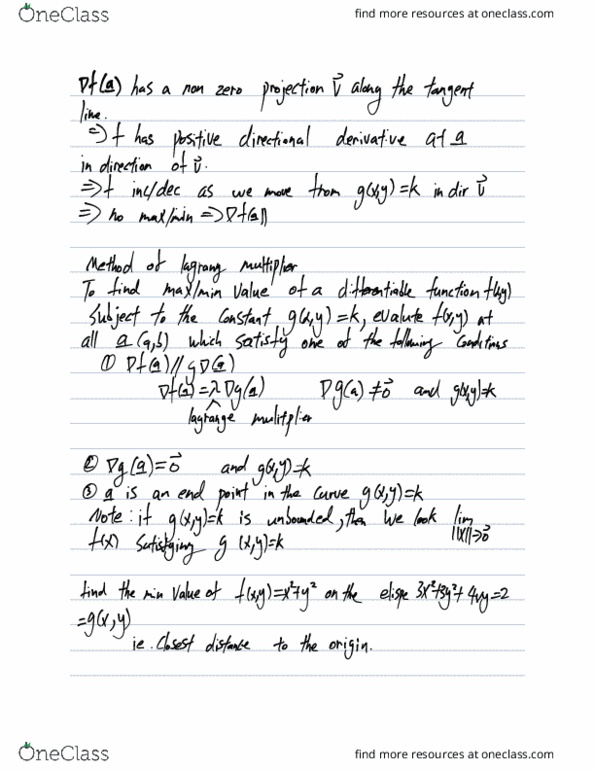 OneClass
find more resources at oneclass.com
∇f(a) has a non zero projection v⃗ along the tangent
line.
=> f has positive directional derivative at a
in direction of v⃗.
=> f inc/dec as we move from g(x,y)=k in dir v⃗
=> no max/min => ∇f(a)||
Method of lagrang multiplier
To find max/min value of a differentiable function f(x,y)
Subject to the constant g(x,y)=k, evalute f(x,y) at
all a(a,b) which satisfy one of the following conditions
① ∇f(a)//g∇(a)
∇f(a)=λ∇g(a) ∇g(a)≠0⃗ and g(x,y)=k
lagrange mulitplier
② ∇g(a)=0⃗ and g(x,y)=k
③ a is an end point in the curve g(x,y)=k
Note: if g(x,y)=k is unbounded, then we look lim ||x||→0⃗
f(x) satisfying g(x,y)=k
find the min value of f(x,y)=x²+y² on the elispe 3x²+3y²+4xy=2
=g(x,y)
ie. closest distance to the origin.
OneClass
find more resources at oneclass.com